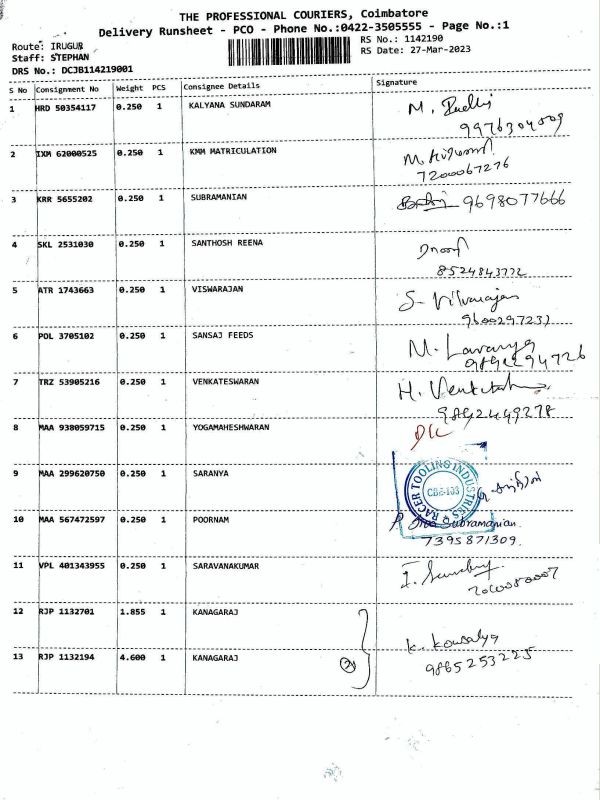 THE PROFESSIONAL COURIERS, Coimbatore
Delivery Runsheet - PCO - Phone No.:0422-3505555 - Page No.:1
Route: IRUGUR
RS No.: 1142190
Staff: STEPHAN
RS Date: 27-Mar-2023
DRS No.: DCJB114219001
S No Consignment No Weight PCS Consignee Details Signature
1 HRD 50354117 0.250 1 KALYANA SUNDARAM M.
9976304509
2 IXM 62000525 0.250 1 KMM MATRICULATION M.
7200067276
3 KRR 5655202 0.250 1 SUBRAMANIAN 9698077666
4 SKL 2531030 0.250 1 SANTHOSH REENA
8524843772
5 ATR 1743663 0.250 1 VISWARAJAN S. Vilvarajan
9600297237
6 POL 3705102 0.250 1 SANSAJ FEEDS M. Lavanya
7 TRZ 53905216 0.250 1 VENKATESWARAN H.
9842449278
8 MAA 938059715 0.250 1 YOGAMAHESHWARAN
9 MAA 299620750 0.250 1 SARANYA
RACER TOOLING INDUSTRIES
CBE-103
10 MAA 567472597 0.250 1 POORNAM P. Siva Subramanian.
7395871309.
11 VPL 401343955 0.250 1 SARAVANAKUMAR
12 RJP 1132701 1.855 1 KANAGARAJ
K. Kowsalya
13 RJP 1132194 4.600 1 KANAGARAJ 2
9865253225